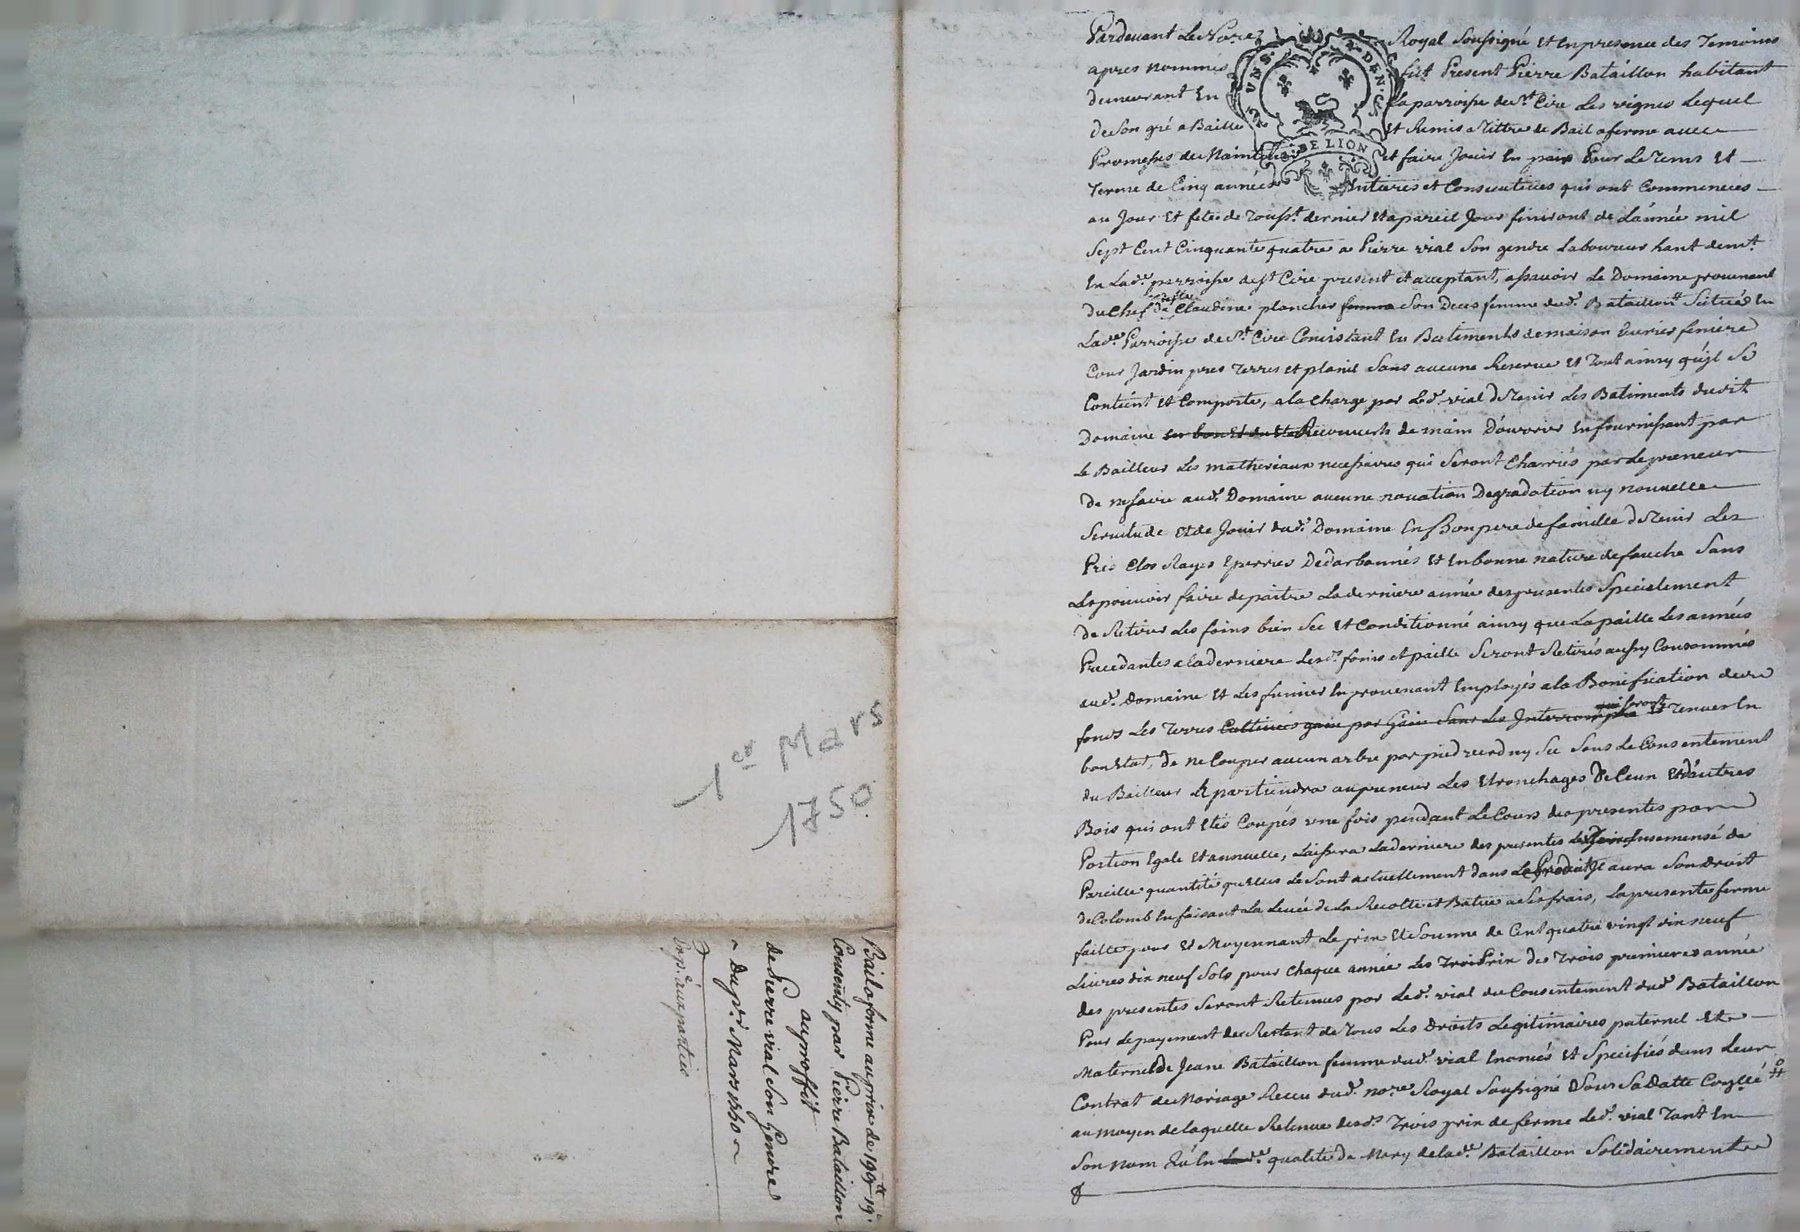 1er Mars
1750
Bail aferme au prix de 199tt 19s
Consenty par Pierre Bataillon
au proffit
de Pierre vial Son Gendre
Du pr. Mars 1750
Exp. aux parties
UN S. DEN.
DE LION
Pardevant Le No.re Royal Soussigné Et En presence des Temoins
apres nommes fut Present Pierre Bataillon habitant
demeurant En La parroisse de St Cire Les vignes Lequel
de Son gré a Baillé Et Remis a Tittre de Bail aferme avec
Promesses de Maintenir et faire Jouir En paix Pour Le Tems Et
Terme de Cinq années Entieres et Consecutives qui ont Commencées
au Jour Et fete de Touss.t dernier Et a pareil Jour finiront de L'année mil
Sept Cent Cinquante quatre a Pierre vial Son gendre Laboureur hant demt.
En Lad.e parroisse de St Cire present et acceptant, assavoir Le Domaine provenant
du Chef de Claudine plancher femme Son Deces femme dud. Bataillon Scitué En
Lad.e Parroisse de St Cire Consistant En Batiments de maison Ecurier feniere
Cour Jardin pres Terres et planit Sans aucune Reserve Et Tout ainsy qu'il Se
Contient Et Comporte, a la Charge par Led. vial de Tenir Les Batiments dudit
Domaine Recouverts de main D'ouvrier En fournissant par
Le Bailleur Les matheriaux necessaires qui Seront Charriés par Le preneur
de ne faire aud. Domaine aucune novation Degradation ny nouvelle
Servitude Et de Jouir dud. Domaine En Bon pere de famille de Tenir Les
Pres Clos Rayes Epierres Dedarbonnés Et En bonne nature de fauche Sans
Les pouvoir faire depaitre La derniere année des presentes Specialement
de Retirer Les foins bien Sec Et Conditionné ainsy que La paille Les années
Precedantes a la derniere Lesd. foins et paille Seront Retirés aussy Consommés
aud. Domaine Et Les fumier En provenant Employés a la Bonification de ses
fonds Les Terres Cultivées qui seront Tenues En
bon Etat, de ne Couper aucun arbre par pied verd ny Sec Sans Le Consentement
du Bailleur apartiendra au preneur Les Etronchages de Ceux Et d'autres
Bois qui ont Etés Coupés une fois pendant Le Cours des presentes par
Portion Egale Et annuelle, Laissera La derniere des presentes Ensemensé de
Pareille quantité qu'elles Le Sont actuellement dans Le Produit Il aura Son Droit
de Colomb En faisant La Levée de La Recolte et Battue a Ses frais, La presente ferme
faitte pour Et Moyennant Le prix Et Somme de Cent quatre vingt dix neuf
Livres dix neuf Sols pour Chaque année Les Trois Prix des Trois premieres année
des presentes Seront Retenues par Led. vial du Consentement dud. Bataillon
Pour Le payement du Restant de Tous Les Droits Legitimaires paternel Et
Maternel de Jeane Bataillon femme dud. vial Enoncés Et Specifiés dans Leur
Contrat de Mariage Receu dud. nore. Royal Soussigné Sous Sa Datte
au moyen de Laquelle Retenue desd. Trois prix de ferme Led. vial Tant En
Son nom qu'En qualite de Mary de Lad.e Bataillon Solidairement